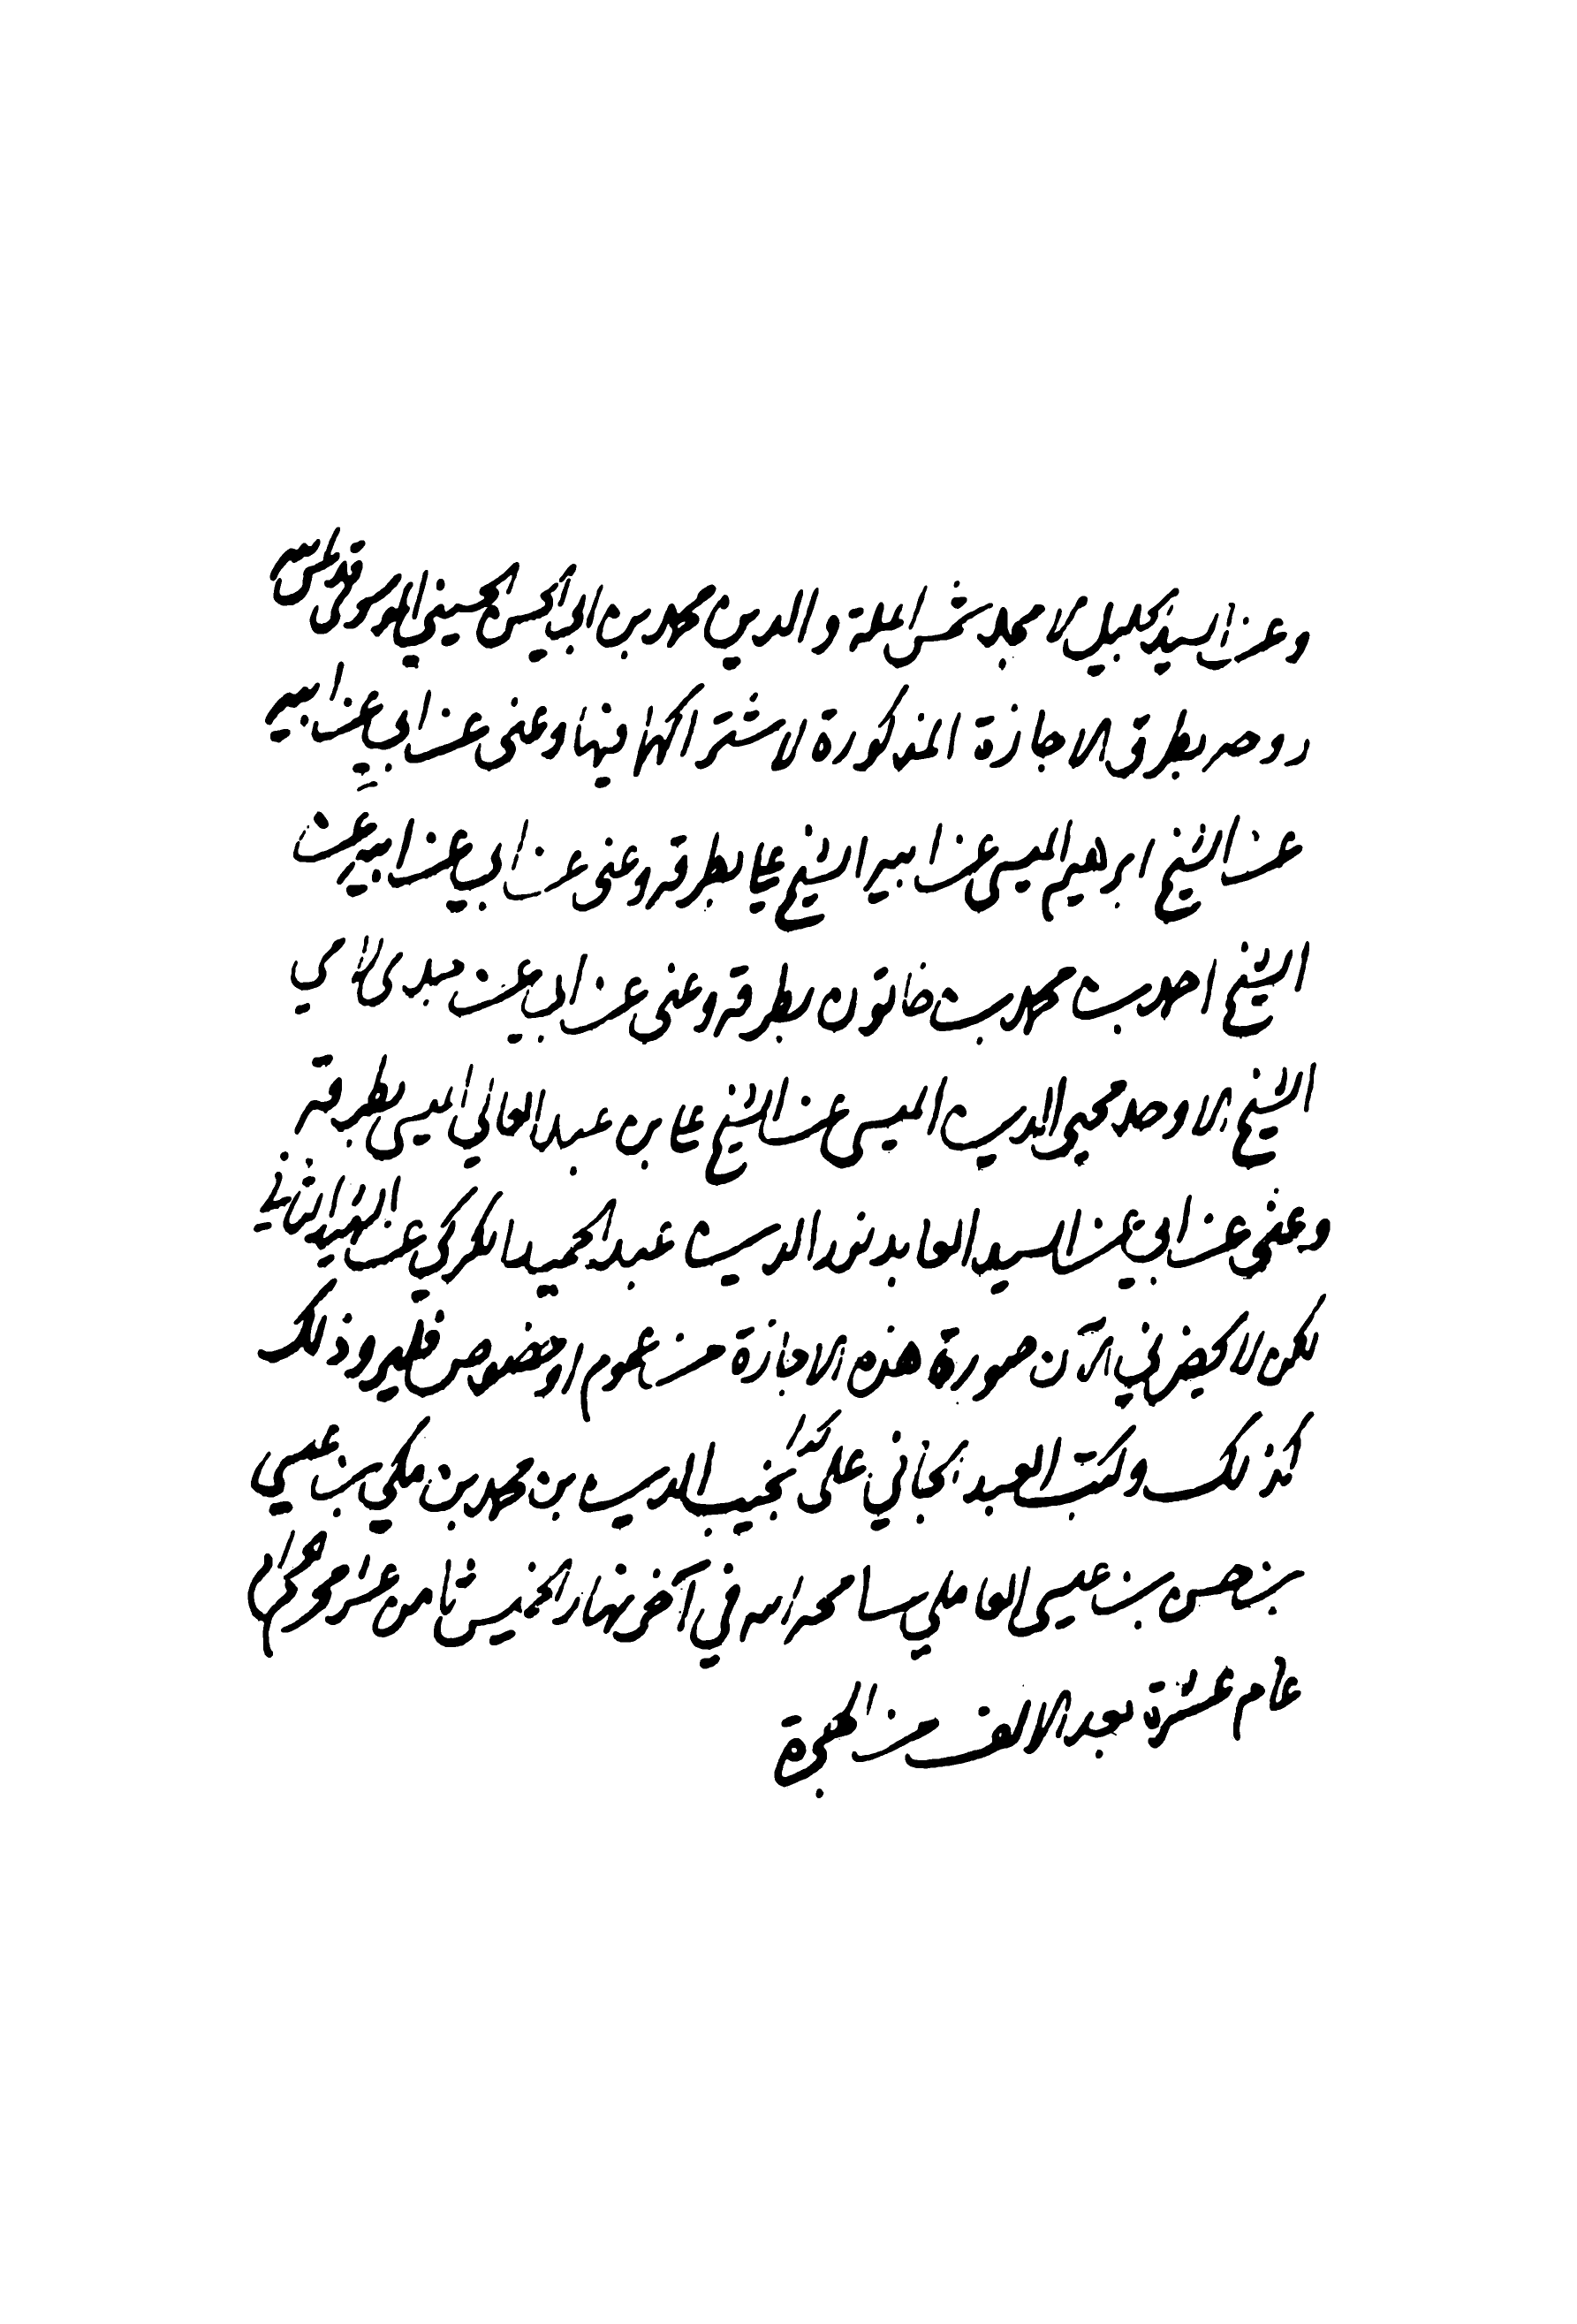 وعن السيد الجليل الامجد شمس الملة والدين محمد بن ابي الحسن الحسيني قدس
روحه بطرق الاجازة المذكورة لاشتراكهما فيها وعني عن ابي عن ابيه
عن الشيخ ابرهيم الميسي عن ابيه الشيخ علي بطرقه وعني عن ابي عن ابيه عن
الشيخ احمد بن محمد بن خاتون بطرقه وعني عن ابي عن جدي لامي
الشيخ الاوحد محيي الدين الميسي عن الشيخ علي بن عبد العالي الميسي بطريقه
وعني عن ابي عن السيد العابد نور الدين عبد الحميد الكركي عن الشهيد الثاني
لكن لا يحضرني الآن صورة هذه الاجازة من عموم او خصوص فليرو ذلك
كذلك وكتب العبد الجاني علي نجيب الدين بن محمد بن مكي بن عيسى
بن حسن بن عيسى العاملي سامحه الله في آخر نهار الخميس ثامن عشر محرم
عام عشرة بعد الالف من الهجرة